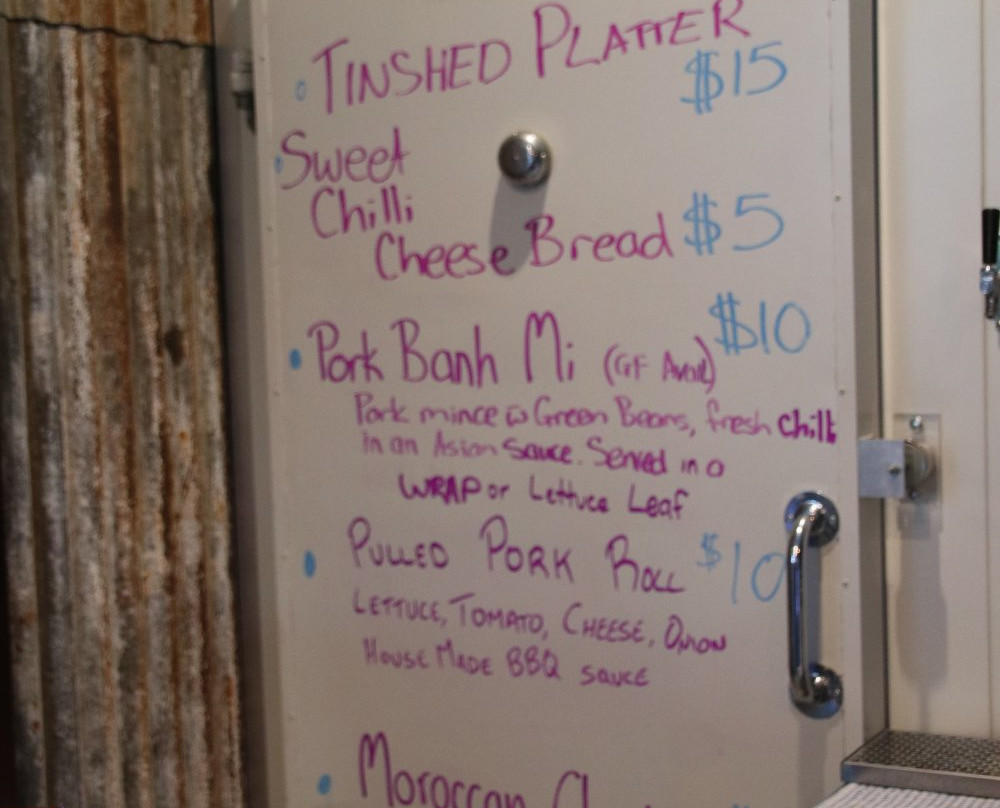 TINSHED PLATTER $15
Sweet
Chilli
Cheese Bread $5
Pork Banh Mi (GF Avail) $10
Pork mince w Green Beans, fresh chilli
in an Asian sauce. Served in a
WRAP or Lettuce Leaf
PULLED PORK ROLL $10
LETTUCE, TOMATO, CHEESE, ONION
HOUSE MADE BBQ SAUCE
Moroccan